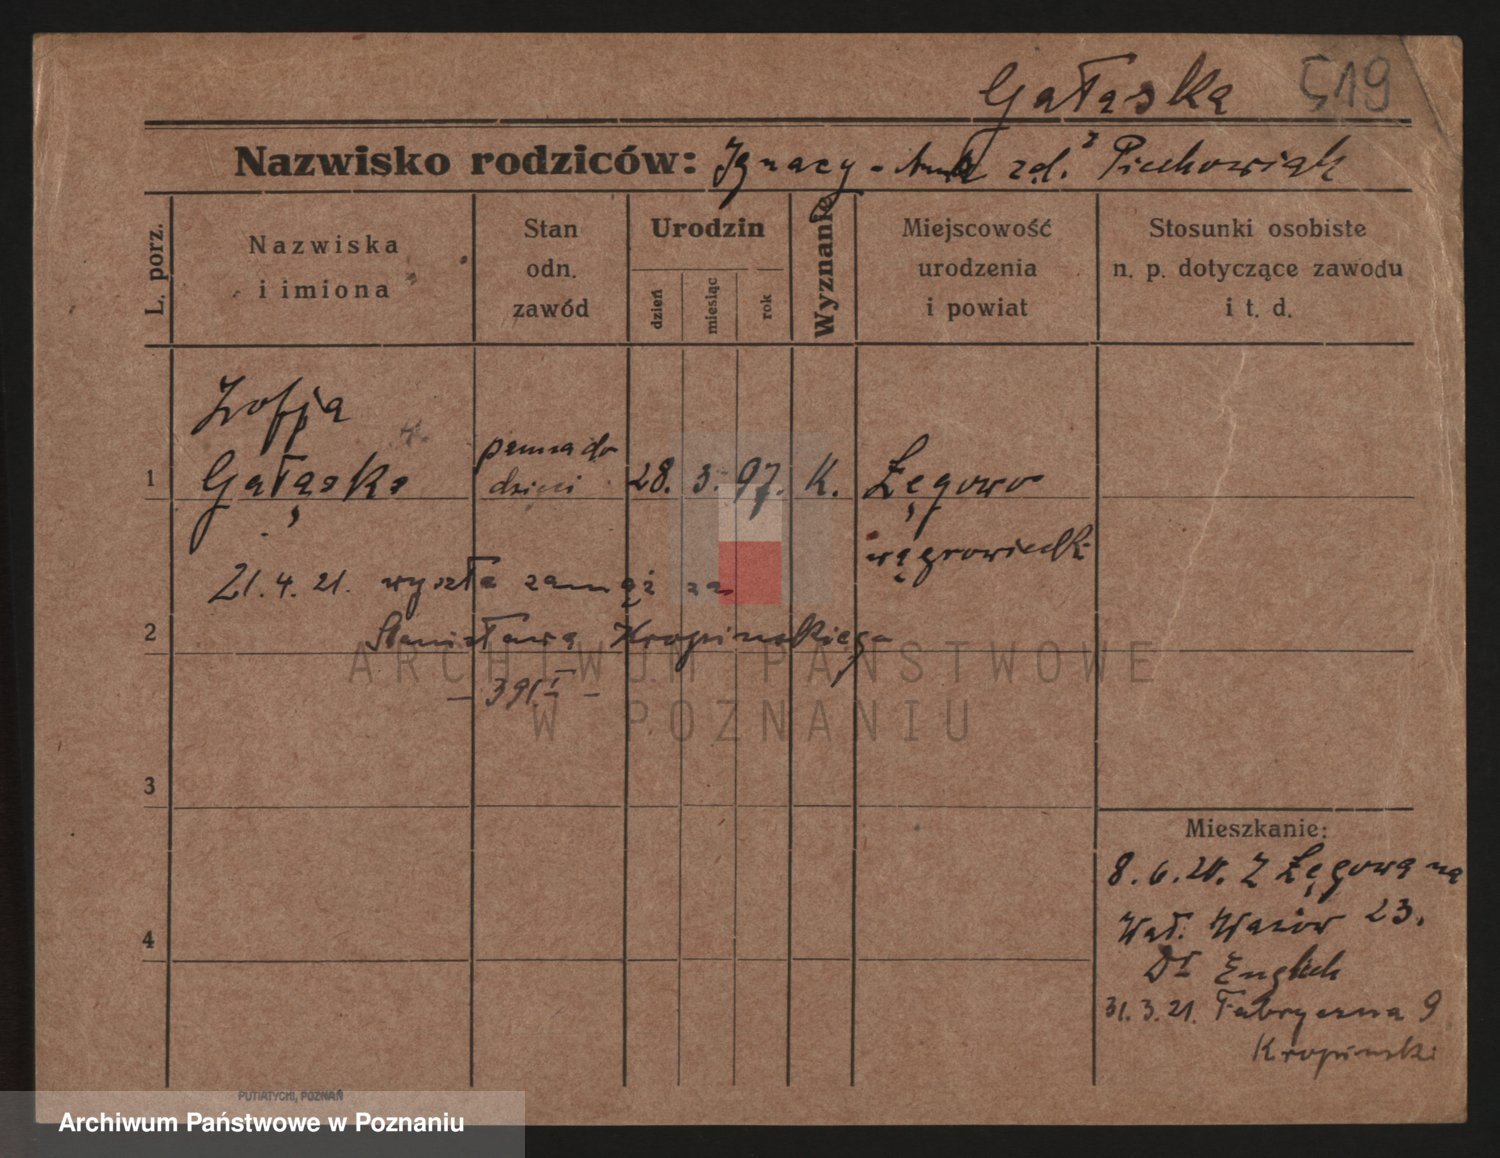 Gałąska 519
Nazwisko rodziców: Ignacy - zd. z Piechowiak
L. porz.
Nazwiska
i imiona
Stan
odn.
zawód
Urodzin
dzień
miesiąc
rok
Wyznanie
Miejscowość
urodzenia
i powiat
Stosunki osobiste
n. p. dotyczące zawodu
i t. d.
Zofja
1 Gałąska panna do dzieci 28. 3. 97. K. Łęgowo
wągrowiecki
21. 4. 21. wyszła zamąż za
2 Stanisława Kropinskiego
- 391.I -
3
4
Mieszkanie:
8. 6. 20. Z Łęgowa na
Wał. Wazów 23.
Dr English
31. 3. 21. Fabryczna 9
Kropinski
PUTIATYCKI, POZNAŃ
ARCHIWUM PAŃSTWOWE
W POZNANIU
Archiwum Państwowe w Poznaniu